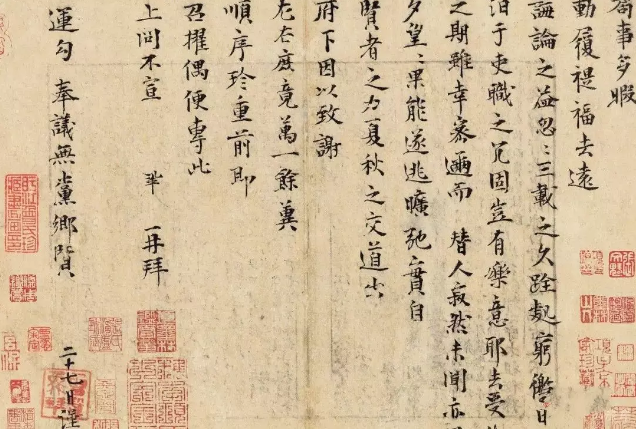 局事多暇
動履禔福去遠
誨論之益忽〻三載之久跧處窮徼日
汨于吏職之冗固豈有樂意耶去受
之期雖幸密邇而替人寂然未聞亦
夕望〻果能遂逃曠弛實自
賢者之力夏秋之交道出
府下因以致謝
左右庶竟萬一餘冀
順序珍重前即
召擢偶便專此
上問不宣 鞏 再拜
運勾 奉議無黨鄉賢
二十七日謹